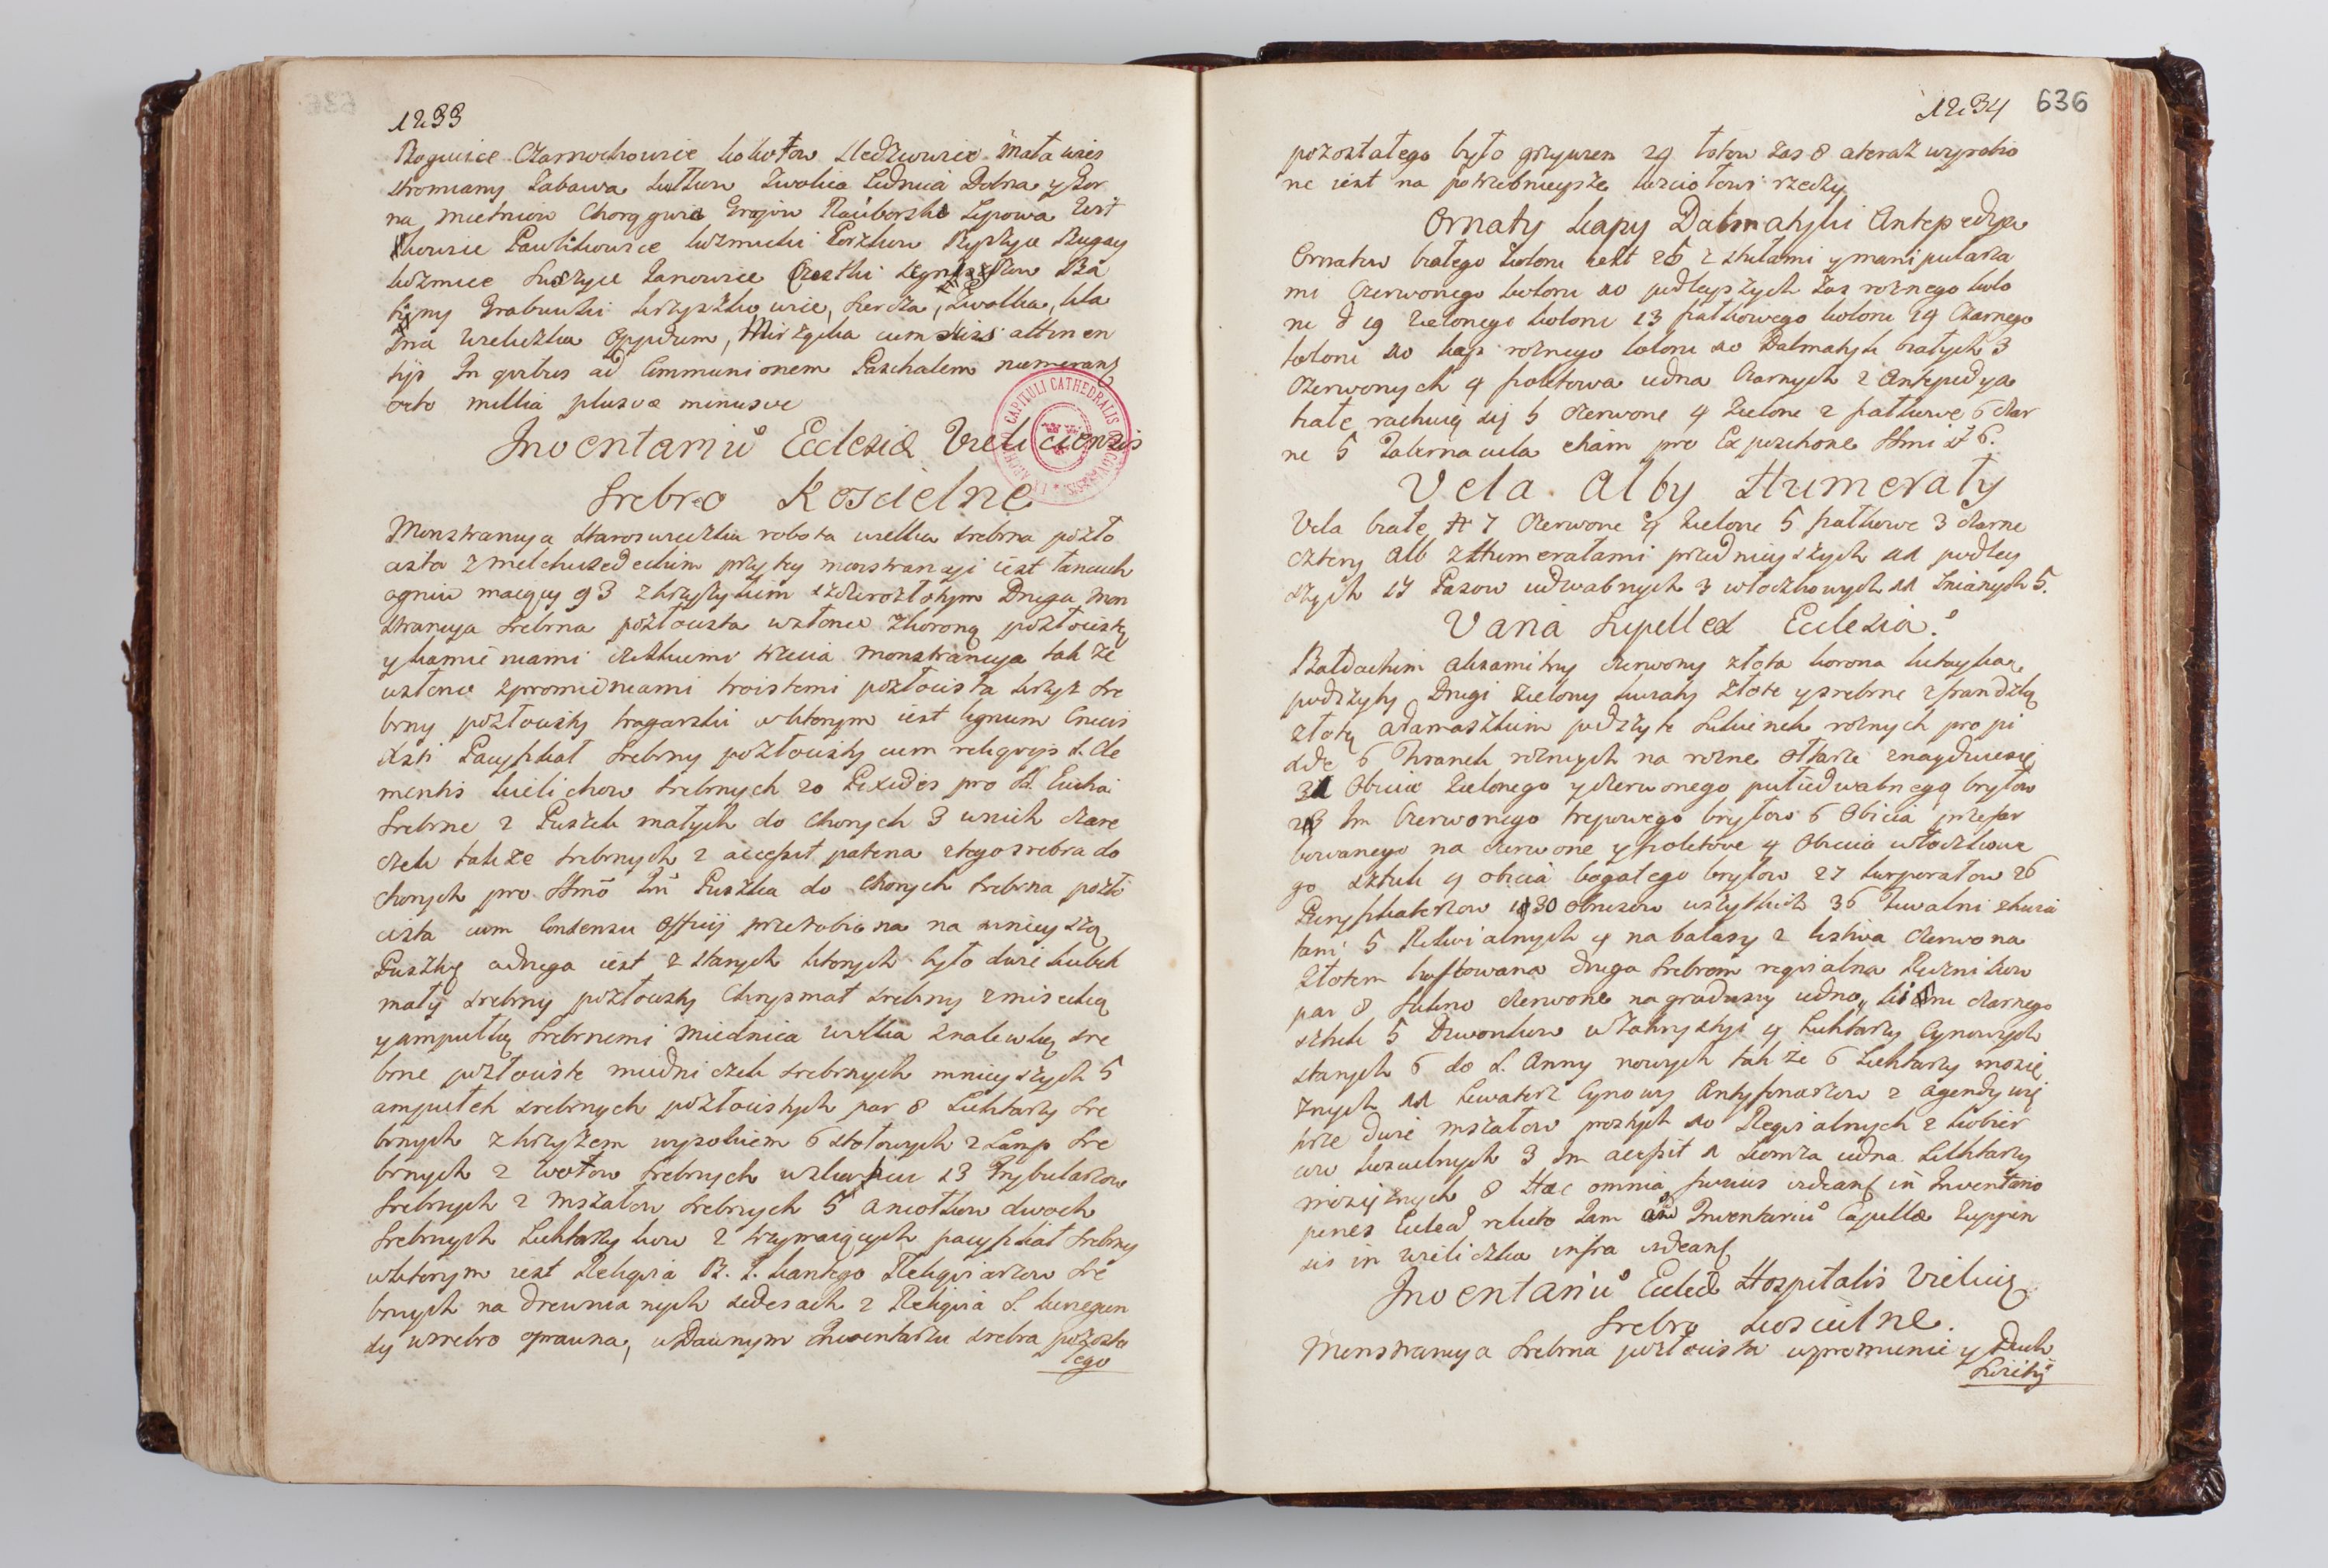 1233
Rogwice Czarnochowice kokotow Sledziowice Mała wies
stromiany Zabawa Sułkow Zwolica Lednica Dolna y Gor
na Mietniow Chorągwica Grajow Raciborsko Lipowa
kowice Pawlikowice kozmicki Byszyce Bugay
kozmice Suszyce Janowice Czostki Sygneczow Ba
biny Grabowki krzyszkowice, Siercza, Zwolka, kla
sna Wieliczka Oppidum, Mierzączka cum suis attinen
tijs In quibus ad Communionem Paschalem numerant
octo millia plusve minusve
Inventariu Ecclesiæ Vieliciensis
Srebro Koscielne
Monstrancya Staroswiecka robota wielka srebrna pozło
cista z melchisedechim przytey monstrancyi iest łancuch
ogniw maiący 93 z krzyzykim szczerozłotym Druga Mon
strancya srebrna pozłocista w słonce z koroną pozłocistą
y kamieniami czeskiemi trzecia monstrancya także
w słonce z promieniami troistemi pozłocista krzyz sre
brny pozłocisty wktorym iest lignum Crucis
Pacyfikał srebrny pozłocisty cum reliquijs S. Cle
mentis kielichow srebrnych 20 Pixides pro SS. Eucha
srebrne 2 Puszek małych do Chorych 3 wnich czare
czek także srebrnych 2 accessit patena ztego srebra do
chorych pro SSmo Puszka do Chorych srebrna pozło
cista cum Consensu Officij przerobiona na mnieyszą
Puszkę adruga iest z starych ktorych było dwie kubek
mały srebrny pozłocisty Chrysmal srebrny z miseczką
y ampułką srebrnemi Miednica wielka z nalewką sre
brne pozłociste miedniczek srebrnych mnieyszych 5
ampułek srebrnych pozłocistych par 8 Lichtarzy sre
brnych z krzyzem wysokiem 6 stołowych 2 Lamp sre
brnych 2 wotow srebrnych 13 Trybularzow
srebrnych 2 Mszałow srebrnych 5 aniołkow dwoch
srebrnych Lichtarzykow 2 trzymaiących pacyfikał srebrny
wktorym iest Religvia B. J. kantego Religviarzow sre
brnych na drewnianych sedesach 2 Religvia S. kunegun
dy wsrebro oprawna, wDawnym Inwentarzu srebra pozosta
łego
1234 636
pozostałego było grzywien 29 łotow zas 8 ateraz wyrobio
ne iest na potrzebnieysze kosciołowi rzeczy
Ornaty kapy Dalmatyki Antepedya
Ornatow białego koloru iest 26 z stułami y manipularza
mi Czerwonego koloru 10 podleyszych zas roznego kolo
ru 19 zielonego koloru 13 fiałkowego koloru 19 Czarnego
koloru 10 kap roznego koloru 10 Dalmatyk białych 3
Czerwonych 4 fioletowa iedna Czarnych 2 Antepedya
białe rachuią się 5 czerwone 4 zielone 2 fiałkowe 6 czar
ne 5 Tabernacula etiam pro Expositione SSmi st 6.
Vela Alby Humerały
Vela białe 7 Czerwone 4 zielone 5 fiałkowe 3 czarne
cztery Alb z Humerałami przednieyszych 11 podley
szych 17 Pasow iedwabnych 3 włoczkowych 11 lnianych 5.
Varia Supellex Ecclesiæ
Baldachim axamitny czerwony złota korona kitayką
podszyty Drugi zielony kwiaty złote y srebrne z frandzlą
złotą adamaszkim podszyte Sukienek roznych pro pi
xide 6 firanek roznych na rozne ołtarze znayduiesię
31 Obicia zielonego y czerwonego pułiedwabnego brytow
Im Czerwonego trypowego brytow 6 Obicia przefar
bowanego na czerwone y fioletowe 4 Obicia włoczkowe
go sztuk 4 obicia bogatego brytow 27 korporałow 26
Puryfikaterzow 30 obrusow wszytkich 36 Tuwalni z
łami 5 Rekwialnych 4 na balasy 2 czerwona
złotem haftowana druga srebrem reqvialna Ręcznikow
par 8 Sukno czerwone na gradusy iedno, czarnego
sztuk 5 Dzwonkow w zakrystyi 4 Lichtarzy Cynowych
starych 6 do S. Anny nowych także 6 Lichtarzy mosię
znych 11 Lewaterz Cynowy Antyfonarzow 2 Agendy wię
ksze dwie mszałow prostych 10 Reqvialnych 2 kobier
cow koscielnych 3 Im accessit 1 komza iedna Lichtarzy
mosiężnych 8 Hæc omnia fusius videant in Inventario
penes Eccled relicto Jam Inventariu Capellæ Zuppen
sis in Wieliczka infra videant
Inventariu Eccleæ Hospitalis Vielicię
Srebro koscielne.
Monstrancya srebrna pozłocista w promienie y Duch
Swięty